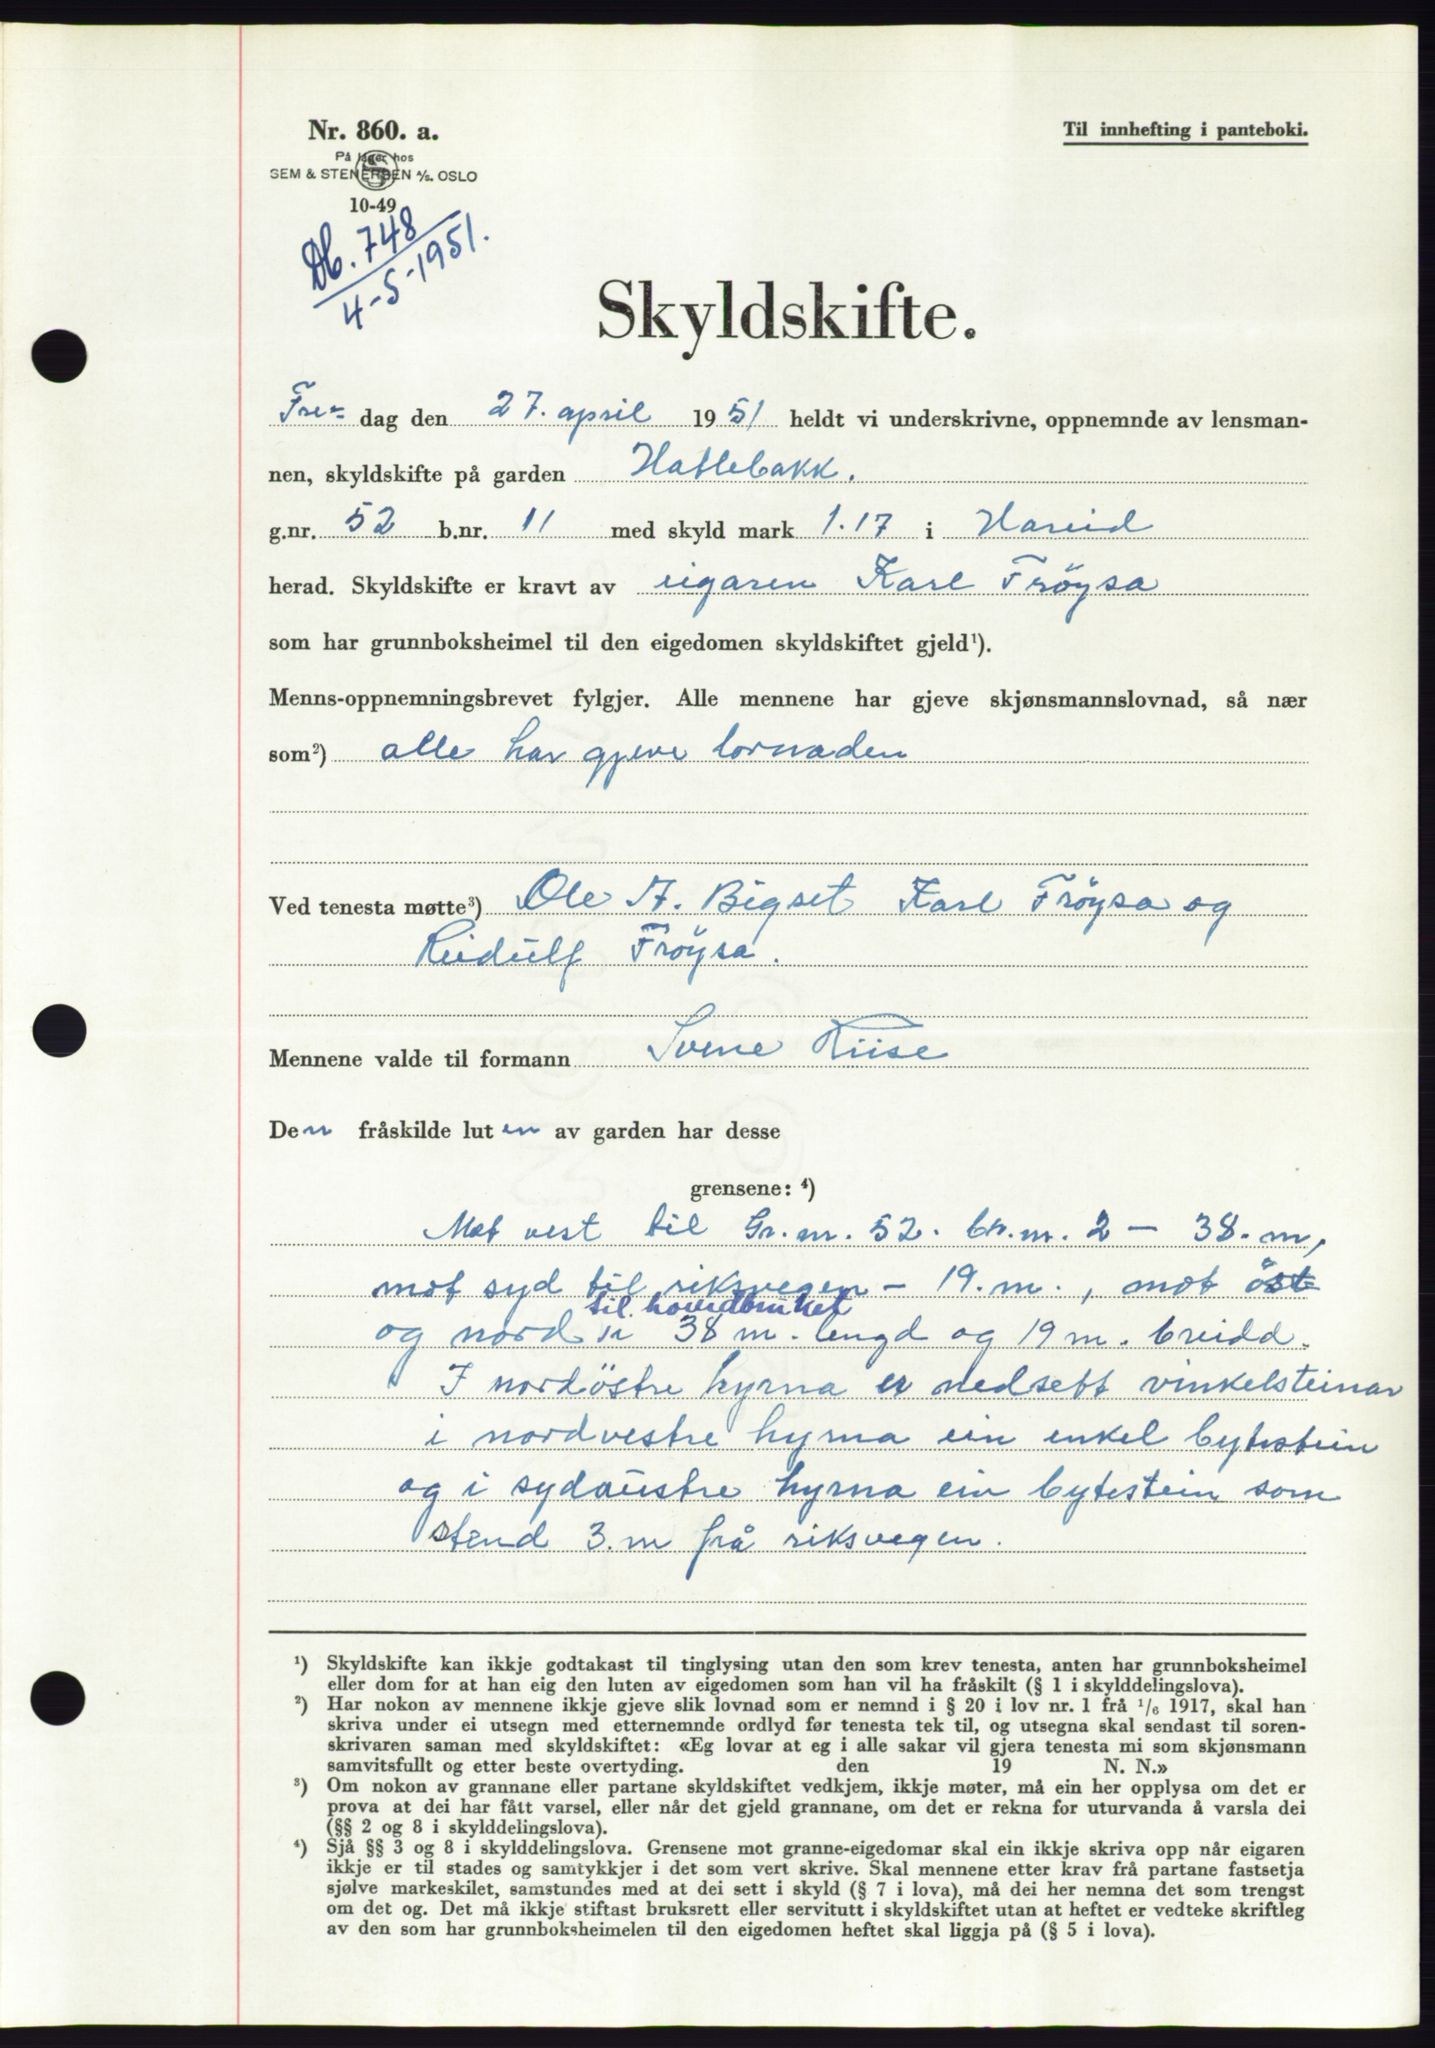 Nr. 860. a.
Til innhefting i panteboki.
På lager hos
SEM & STENERSEN A/S. OSLO
10-49
Db. 748
4-5-1951.
Skyldskifte.
Fre- dag den 27. april 1951 heldt vi underskrivne, oppnemnde av lensman-
nen, skyldskifte på garden Hatlebakk.
g.nr. 52 b.nr. 11 med skyld mark 1.17 i Hareid
herad. Skyldskifte er kravt av eigaren Karl Fröysa
som har grunnboksheimel til den eigedomen skyldskiftet gjeld¹).
Menns-oppnemningsbrevet fylgjer. Alle mennene har gjeve skjønsmannslovnad, så nær
som²) alle har gjeve lovnaden
Ved tenesta møtte³) Ole A. Bigset Karl Fröysa og
Reidulf Fröysa.
Mennene valde til formann Sverre Riise
Den fråskilde luten av garden har desse
grensene: ⁴)
Mot vest til Gr. nr. 52. br. nr. 2 — 38. m,
mot syd til riksvegen — 19. m., mot öst
til hovudbruket
og nord 38 m. lengd og 19 m. breidd.
I nordöstre hyrna er nedsett vinkelsteinar
i nordvestre hyrna ein enkel bytestein
og i sydaustre hyrna ein bytestein som
stend 3. m frå riksvegen.
¹) Skyldskifte kan ikkje godtakast til tinglysing utan den som krev tenesta, anten har grunnboksheimel
eller dom for at han eig den luten av eigedomen som han vil ha fråskilt (§ 1 i skylddelingslova).
²) Har nokon av mennene ikkje gjeve slik lovnad som er nemnd i § 20 i lov nr. 1 frå 1/6 1917, skal han
skriva under ei utsegn med etternemnde ordlyd før tenesta tek til, og utsegna skal sendast til soren-
skrivaren saman med skyldskiftet: «Eg lovar at eg i alle sakar vil gjera tenesta mi som skjønsmann
samvitsfullt og etter beste overtyding. den 19 N. N.»
³) Om nokon av grannane eller partane skyldskiftet vedkjem, ikkje møter, må ein her opplysa om det er
prova at dei har fått varsel, eller når det gjeld grannane, om det er rekna for uturvanda å varsla dei
(§§ 2 og 8 i skylddelingslova).
⁴) Sjå §§ 3 og 8 i skylddelingslova. Grensene mot granne-eigedomar skal ein ikkje skriva opp når eigaren
ikkje er til stades og samtykkjer i det som vert skrive. Skal mennene etter krav frå partane fastsetja
sjølve markeskilet, samstundes med at dei sett i skyld (§ 7 i lova), må dei her nemna det som trengst
om det og. Det må ikkje stiftast bruksrett eller servitutt i skyldskiftet utan at heftet er vedteke skriftleg
av den som har grunnboksheimelen til den eigedomen heftet skal liggja på (§ 5 i lova).